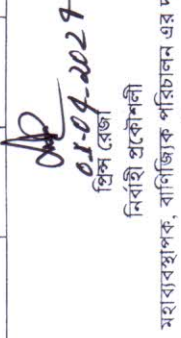 ০৪-০৭-২০২৪
প্রিন্স রেজা
নির্বাহী প্রকৌশলী
মহাব্যবস্থাপক, বাণিজ্যিক পরিচালন এর দ